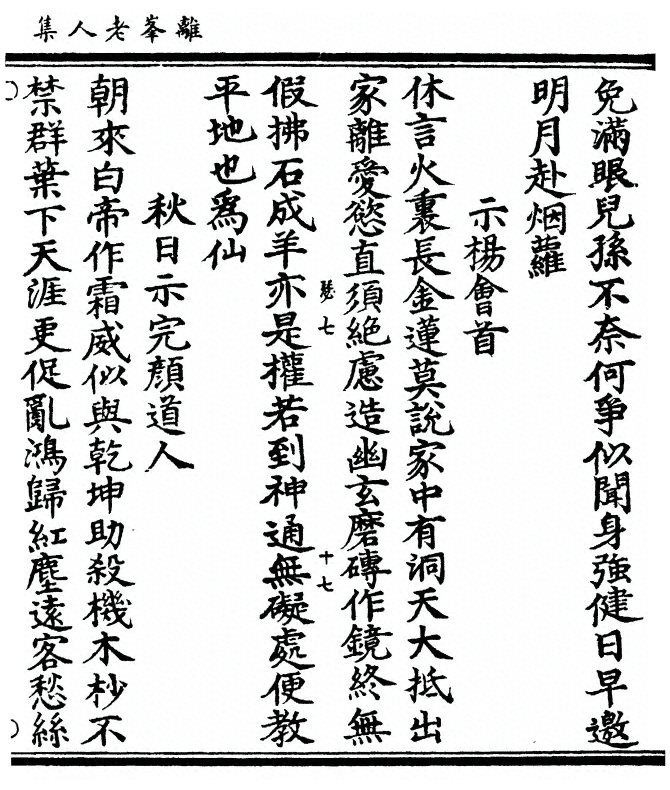 離峯老人集
免滿眼兒孫不奈何爭似聞身強健日早邀
明月赴烟蘿
示楊會首
休言火裏長金蓮莫說家中有洞天大抵出
家離愛慾直須絕慮造幽玄磨磚作鏡終無
瑟七
十七
假拂石成羊亦是權若到神通無礙處便教
平地也爲仙
秋日示完顏道人
朝來白帝作霜威似與乾坤助殺機木杪不
禁群葉下天涯更促亂鴻歸紅塵遠客愁絲